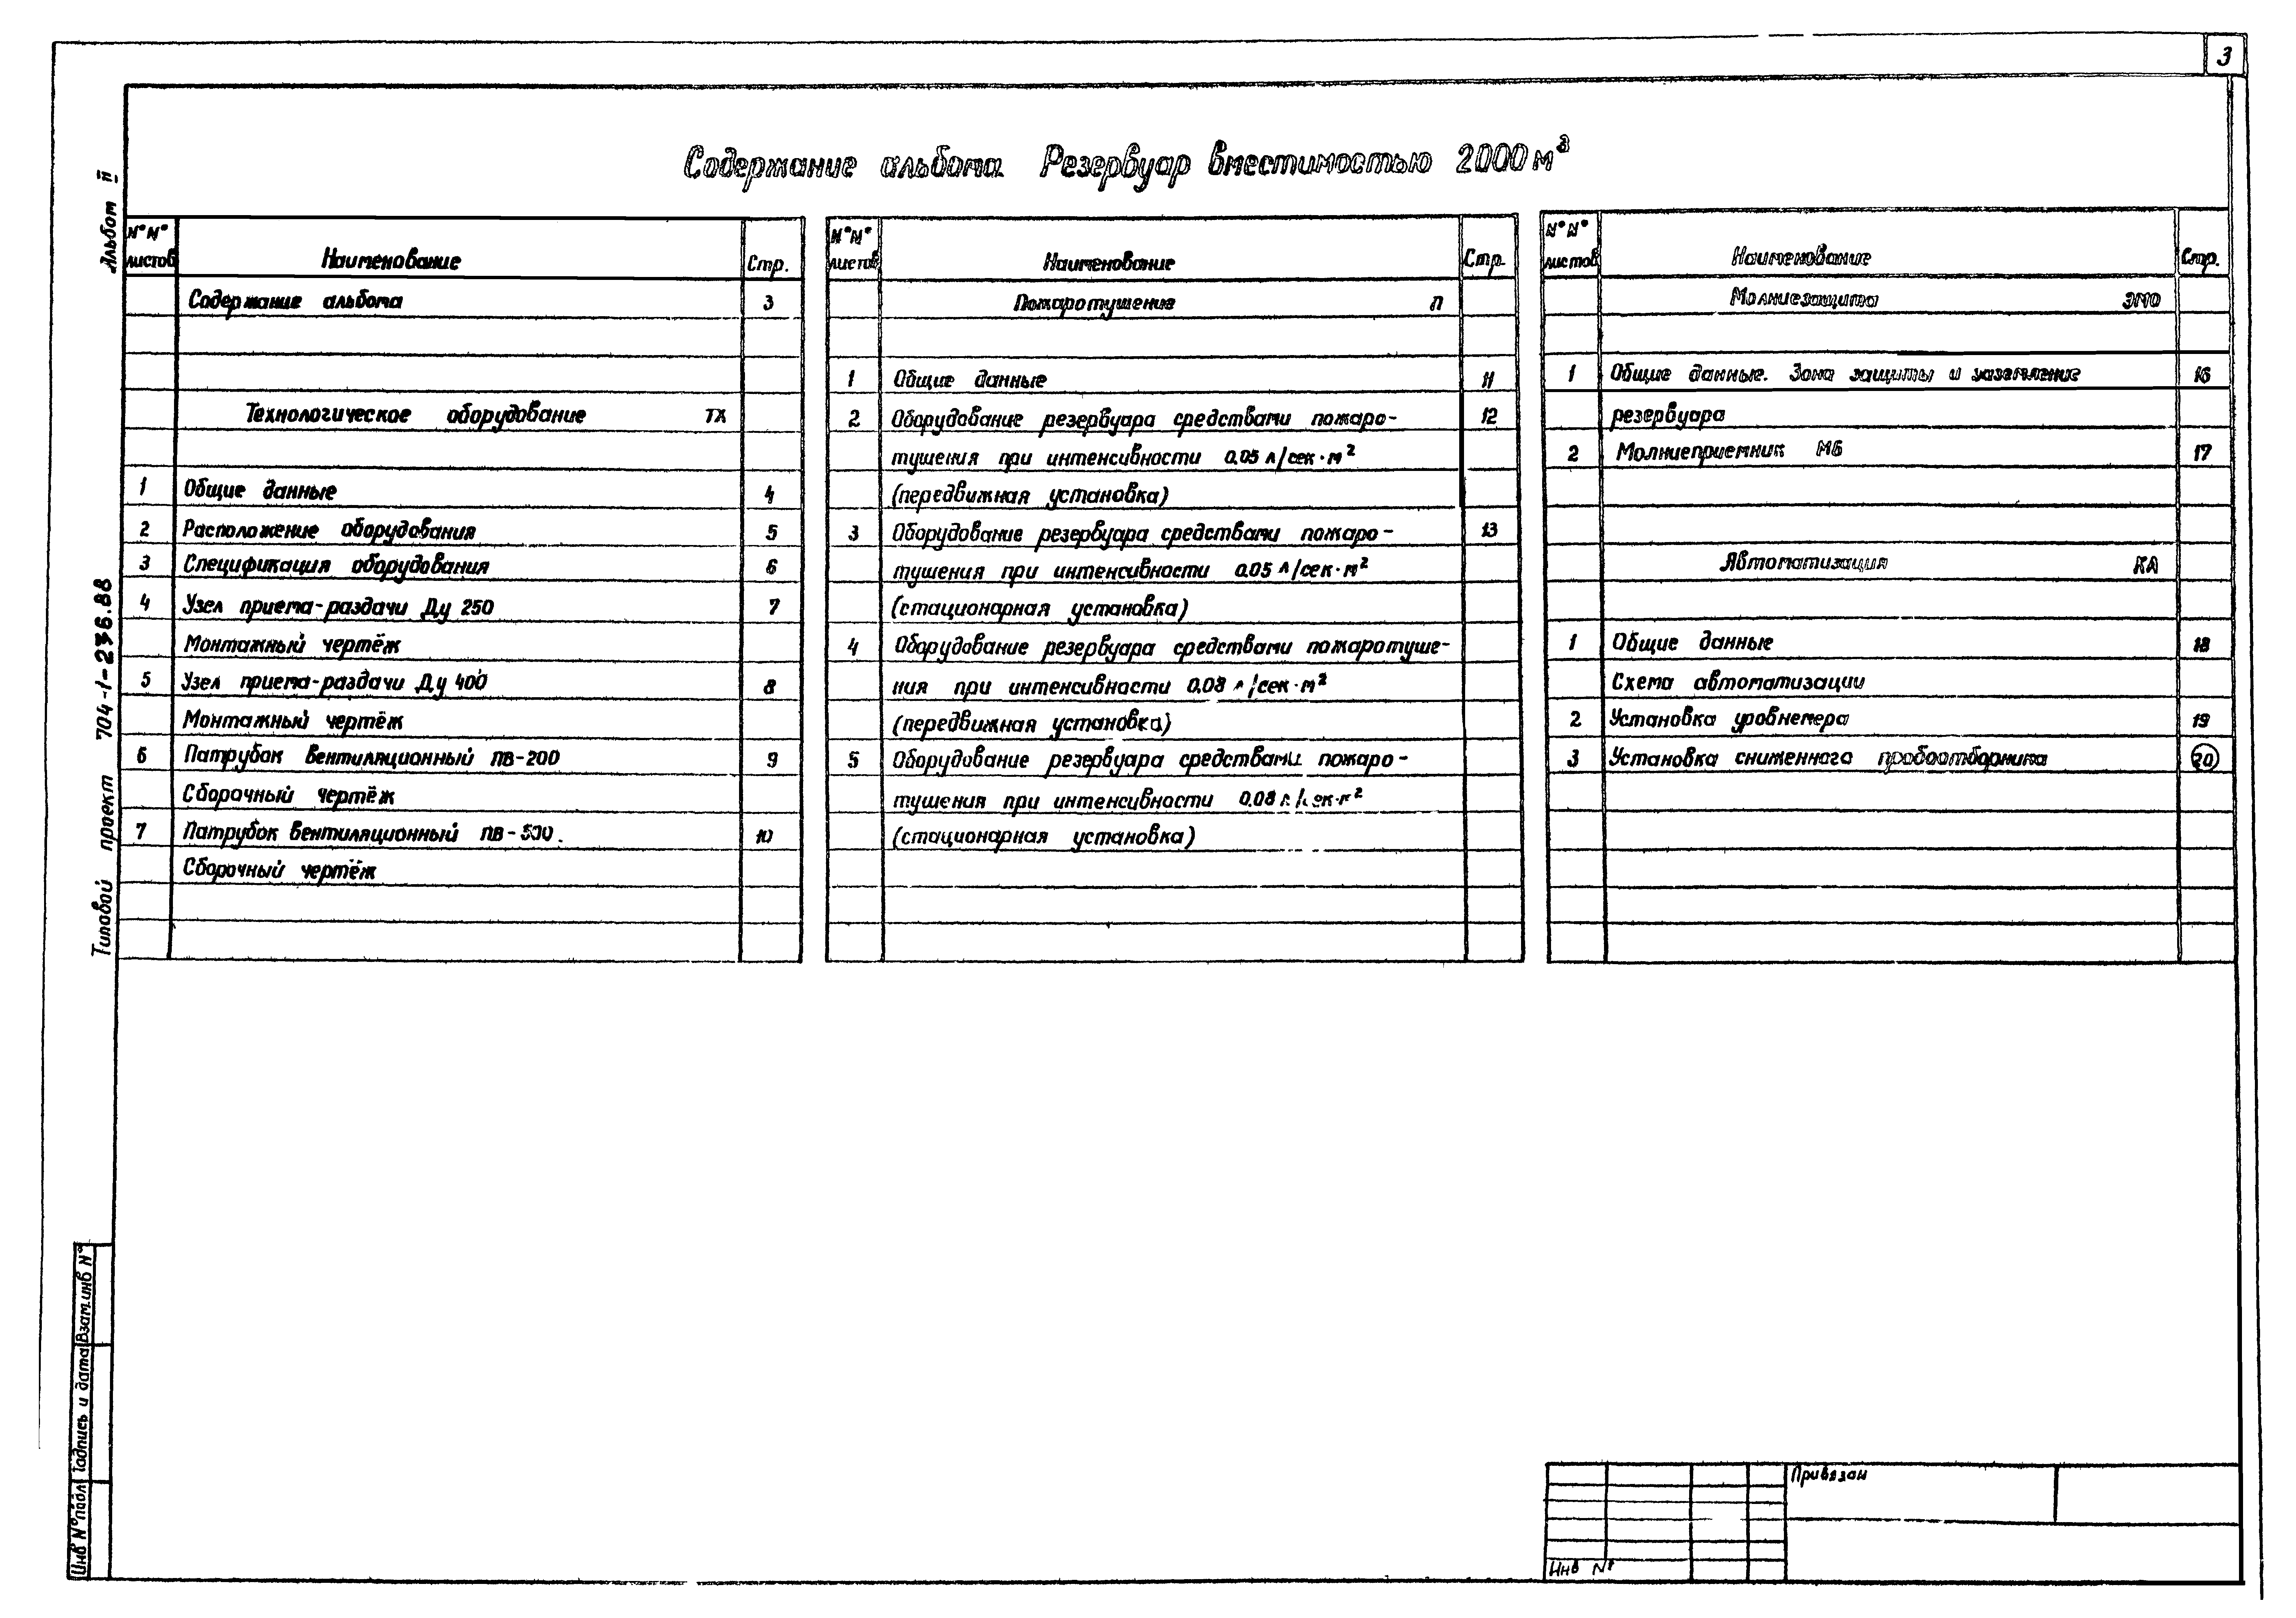 3
Содержание альбома Резервуар вместимостью 2000 м³
Альбом II
Типовой проект 704-1-236.88
N°N° листов Наименование Стр.
Содержание альбома 3
Технологическое оборудование ТХ
1 Общие данные 4
2 Расположение оборудования 5
3 Спецификация оборудования 6
4 Узел приема-раздачи Ду 250 7
Монтажный чертёж
5 Узел приема-раздачи Ду 400 8
Монтажный чертёж
6 Патрубок вентиляционный ПВ-200 9
Сборочный чертёж
7 Патрубок вентиляционный ПВ-500. 10
Сборочный чертёж
N°N° листов Наименование Стр.
Пожаротушение П
1 Общие данные 11
2 Оборудование резервуара средствами пожаро- 12
тушения при интенсивности 0.05 л/сек·м²
(передвижная установка)
3 Оборудование резервуара средствами пожаро- 13
тушения при интенсивности 0.05 л/сек·м²
(стационарная установка)
4 Оборудование резервуара средствами пожаротуше-
ния при интенсивности 0.08 л/сек·м²
(передвижная установка)
5 Оборудование резервуара средствами пожаро-
тушения при интенсивности 0.08 л/сек·м²
(стационарная установка)
N°N° листов Наименование Стр.
Молниезащита ЭМО
1 Общие данные. Зона защиты и 16
резервуара
2 Молниеприемник М6 17
Автоматизация КА
1 Общие данные 18
Схема автоматизации
2 Установка уровнемера 19
3 Установка сниженного пробоотборника 20
Взам.инв N°
Подпись и дата
Инв N° подл
Привязан
Инв N°